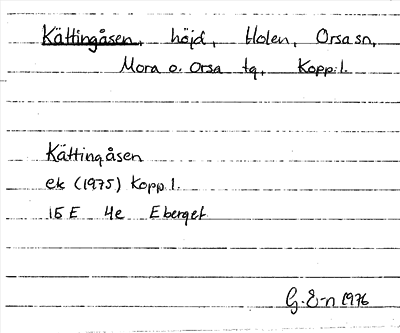 Kättingåsen, höjd, Holen, Orsa sn,
Mora o. Orsa tg, Kopp. l.
Kättingåsen
ek (1975) Kopp. l.
15E 4e Eberget
G. E-n 1976